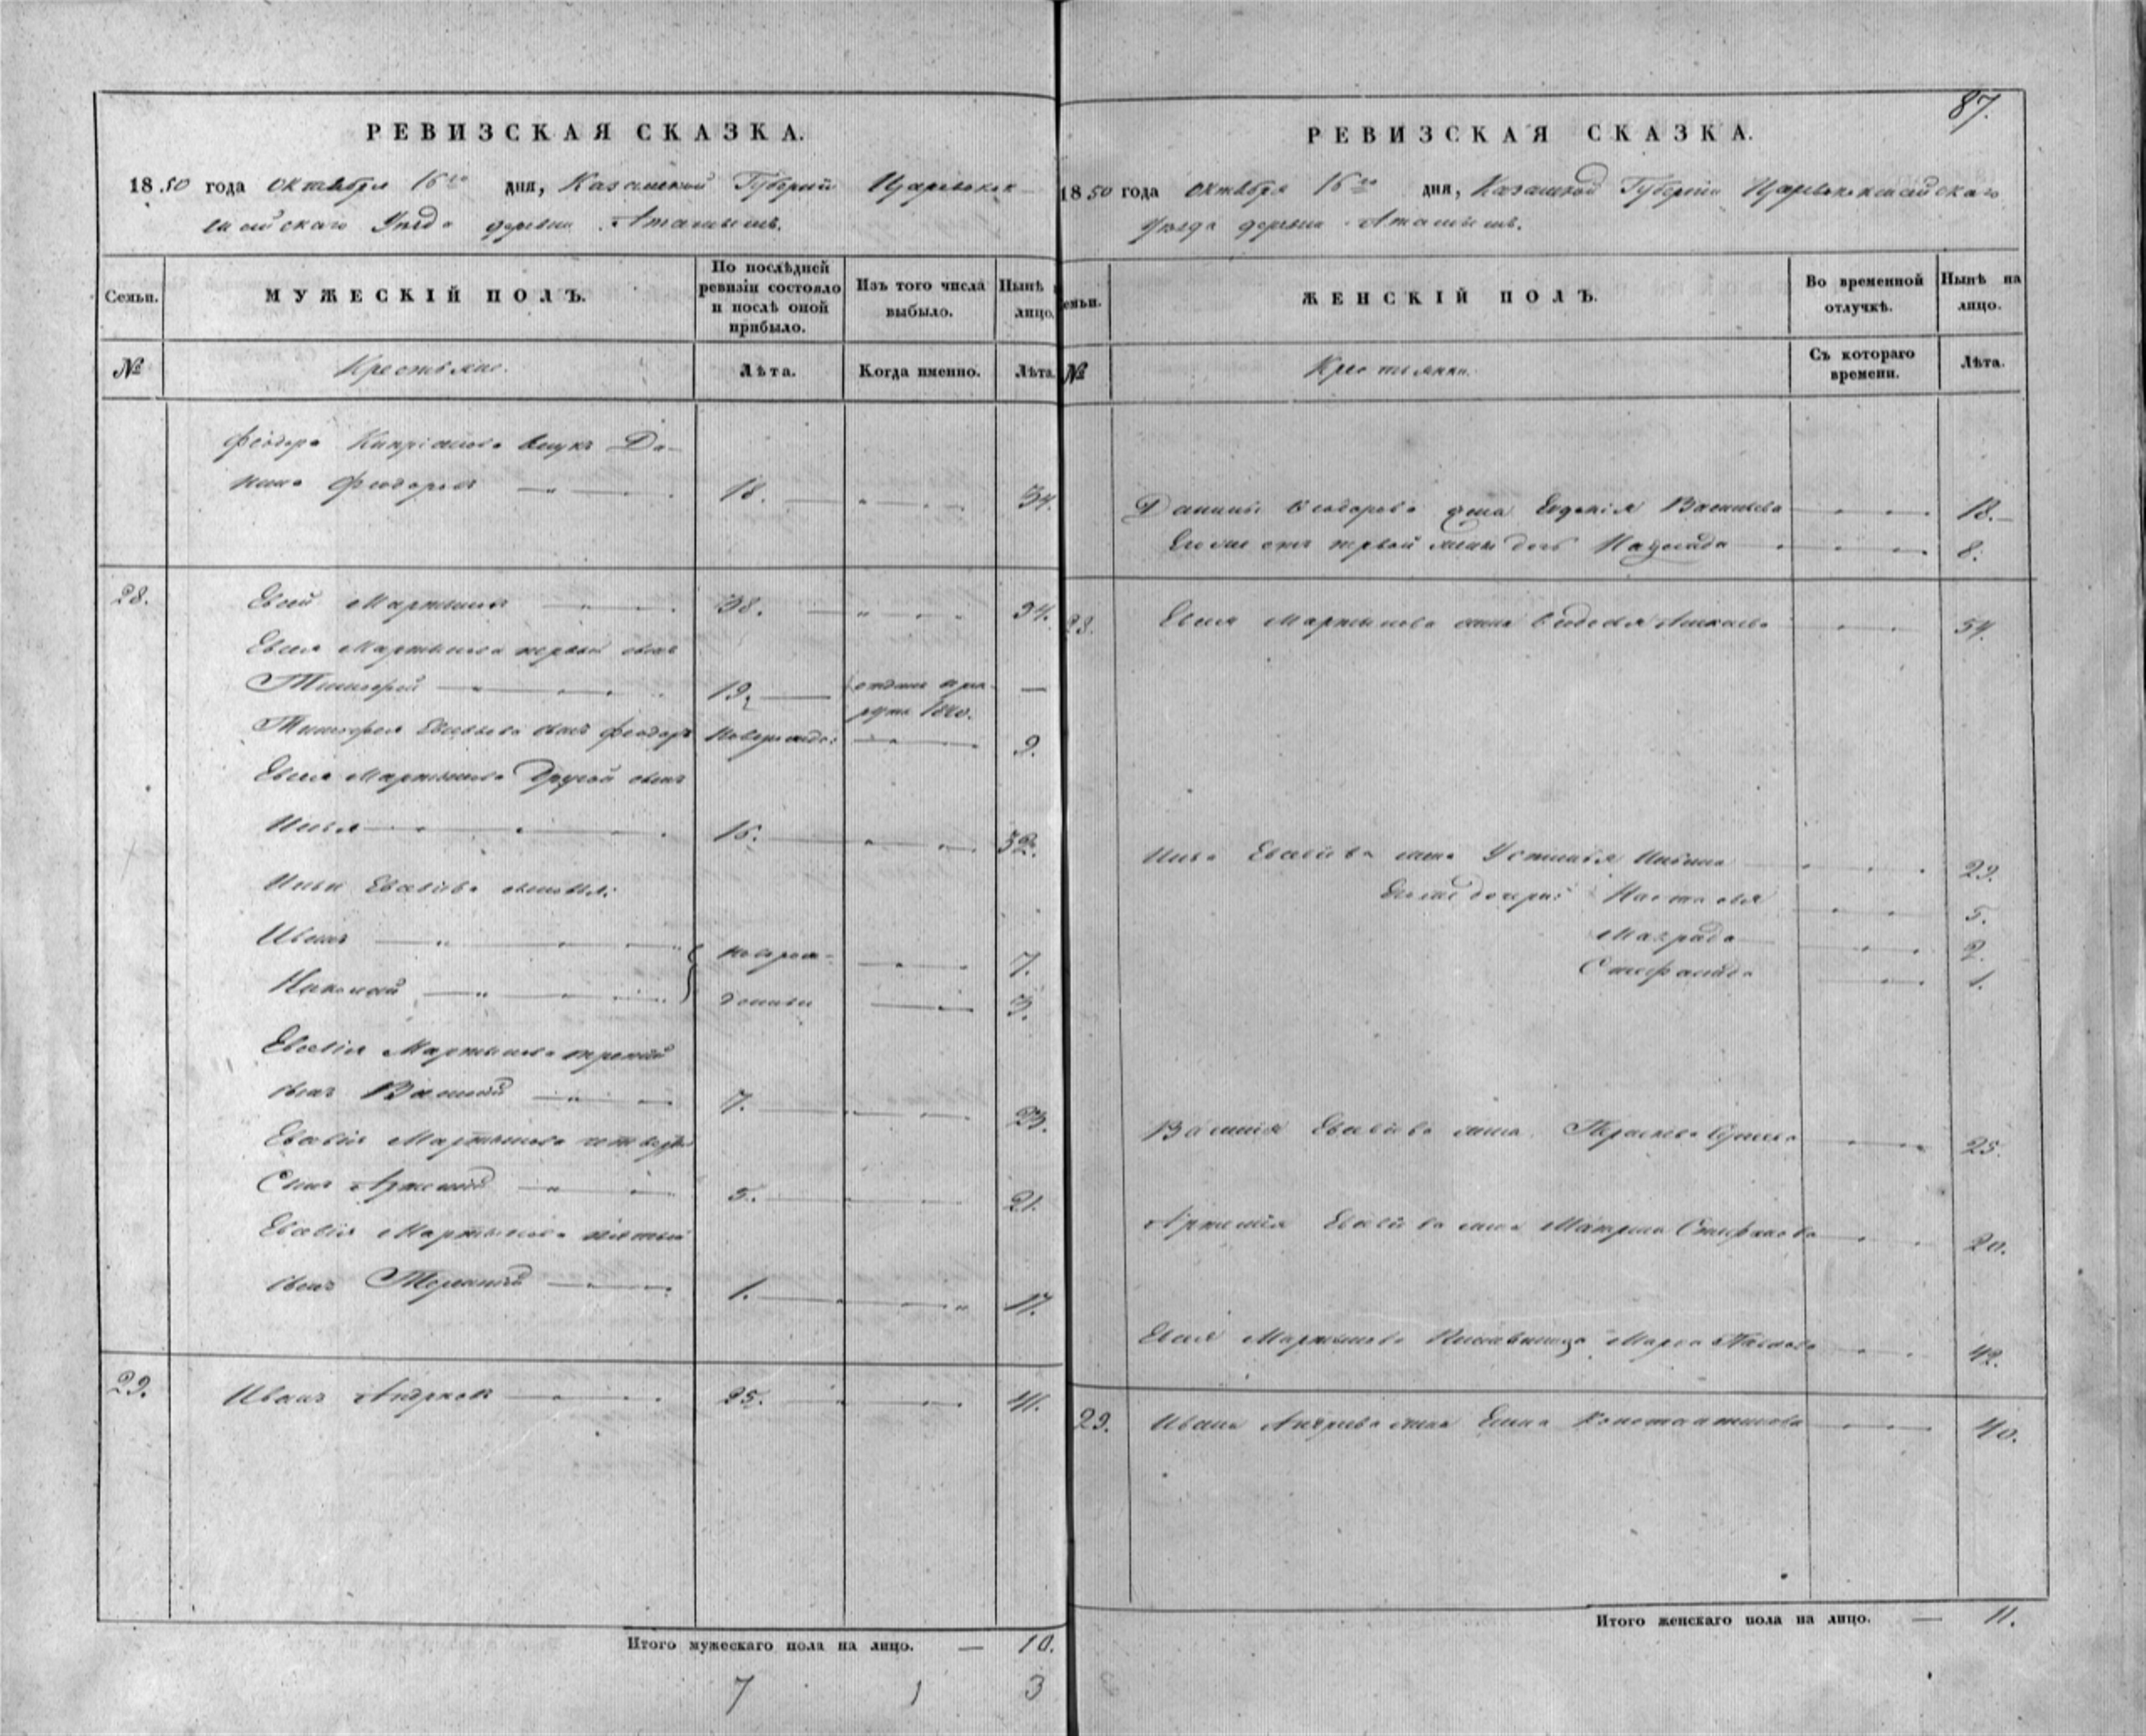 РЕВИЗСКАЯ СКАЗКА.
1850 года октября 16го дня, Казанской Губернии Царевокок-
шайскаго Уезда деревни
Семьи.
МУЖЕСКІЙ ПОЛЪ.
По послѣдней ревизіи состояло и послѣ оной прибыло.
Изъ того числа выбыло.
Нынѣ лицо.
№
Крестьяне.
Лѣта.
Когда именно.
Лѣта.
Феодора внукъ Да-
нила Феодоров 18. 34.
28. Евсей Мартынов 38. 54.
Евсея Мартынова первый сынъ
19. отданъ в рек-
руты 1840. —
сынъ Феодоръ новорожд: 9.
Евсея Мартынова другой сынъ
Илья 16. 32.
Ильи Евсеева сыновья:
Иванъ новорож- 7.
Николай денны 3.
Евсея Мартынова третий
сынъ Василий 7. 23.
Евсея Мартынова четверт
Сынъ Артемий 5. 21.
Евсея Мартынова пятый
сынъ 1. 17.
29. Иванъ Андреев 25. 41.
Итого мужескаго пола на лицо. — 10.
7 1 3
87.
РЕВИЗСКАЯ СКАЗКА.
1850 года октября 16го дня, Казанской Губернии Царевококшайскаго
Уезда деревни
емьи.
ЖЕНСКІЙ ПОЛЪ.
Во временной отлучкѣ.
Нынѣ на лицо.
№
Крестьянки.
Съ котораго времени.
Лѣта.
Данилы Феодорова жена Евдокия Васильева 18.
Его же отъ первой жены дочь 8.
28. Евсея Мартынова жена Федосья 54.
Ильи Евсеева жена Устинья Ильина 29.
Его же дочери: Настасья 5.
2.
Стефанида 1.
Василия Евсеева жена 25.
Артемия Евсеева жена Матрена Стефанова 20.
Евсея Мартынова Марфа 42.
29. Ивана Андреева жена Елена Константинова 40.
Итого женскаго пола на лицо. — 11.